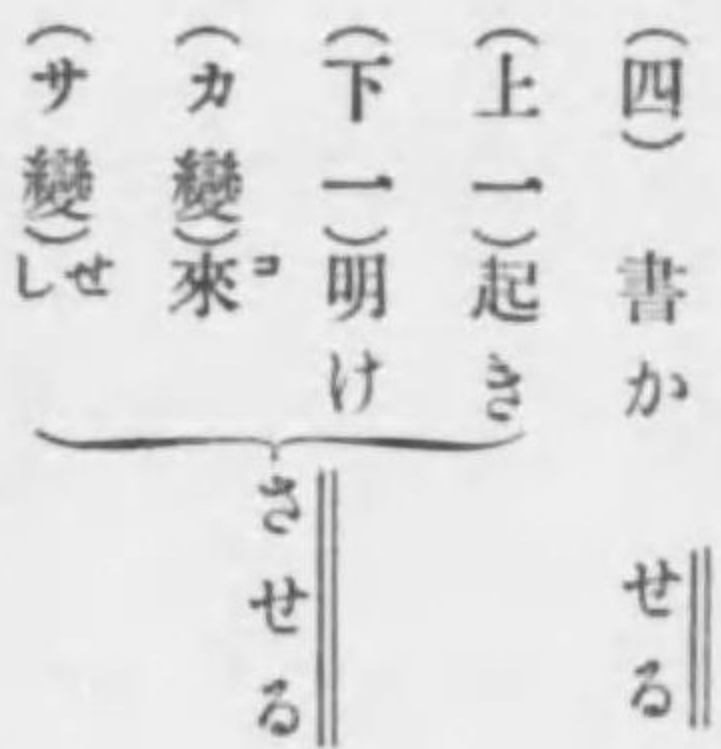 (四) 書か せる
(上一)起き
(下一)明け
(カ變)來コ
(サ變)せ
し
させる